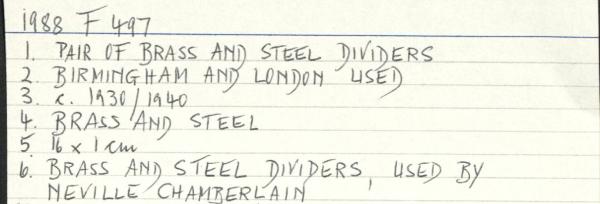 1988 F 497
1. PAIR OF BRASS AND STEEL DIVIDERS
2. BIRMINGHAM AND LONDON USED
3. c. 1930/1940
4. BRASS AND STEEL
5. 16 x 1 cm
6. BRASS AND STEEL DIVIDERS, USED BY
NEVILLE CHAMBERLAIN